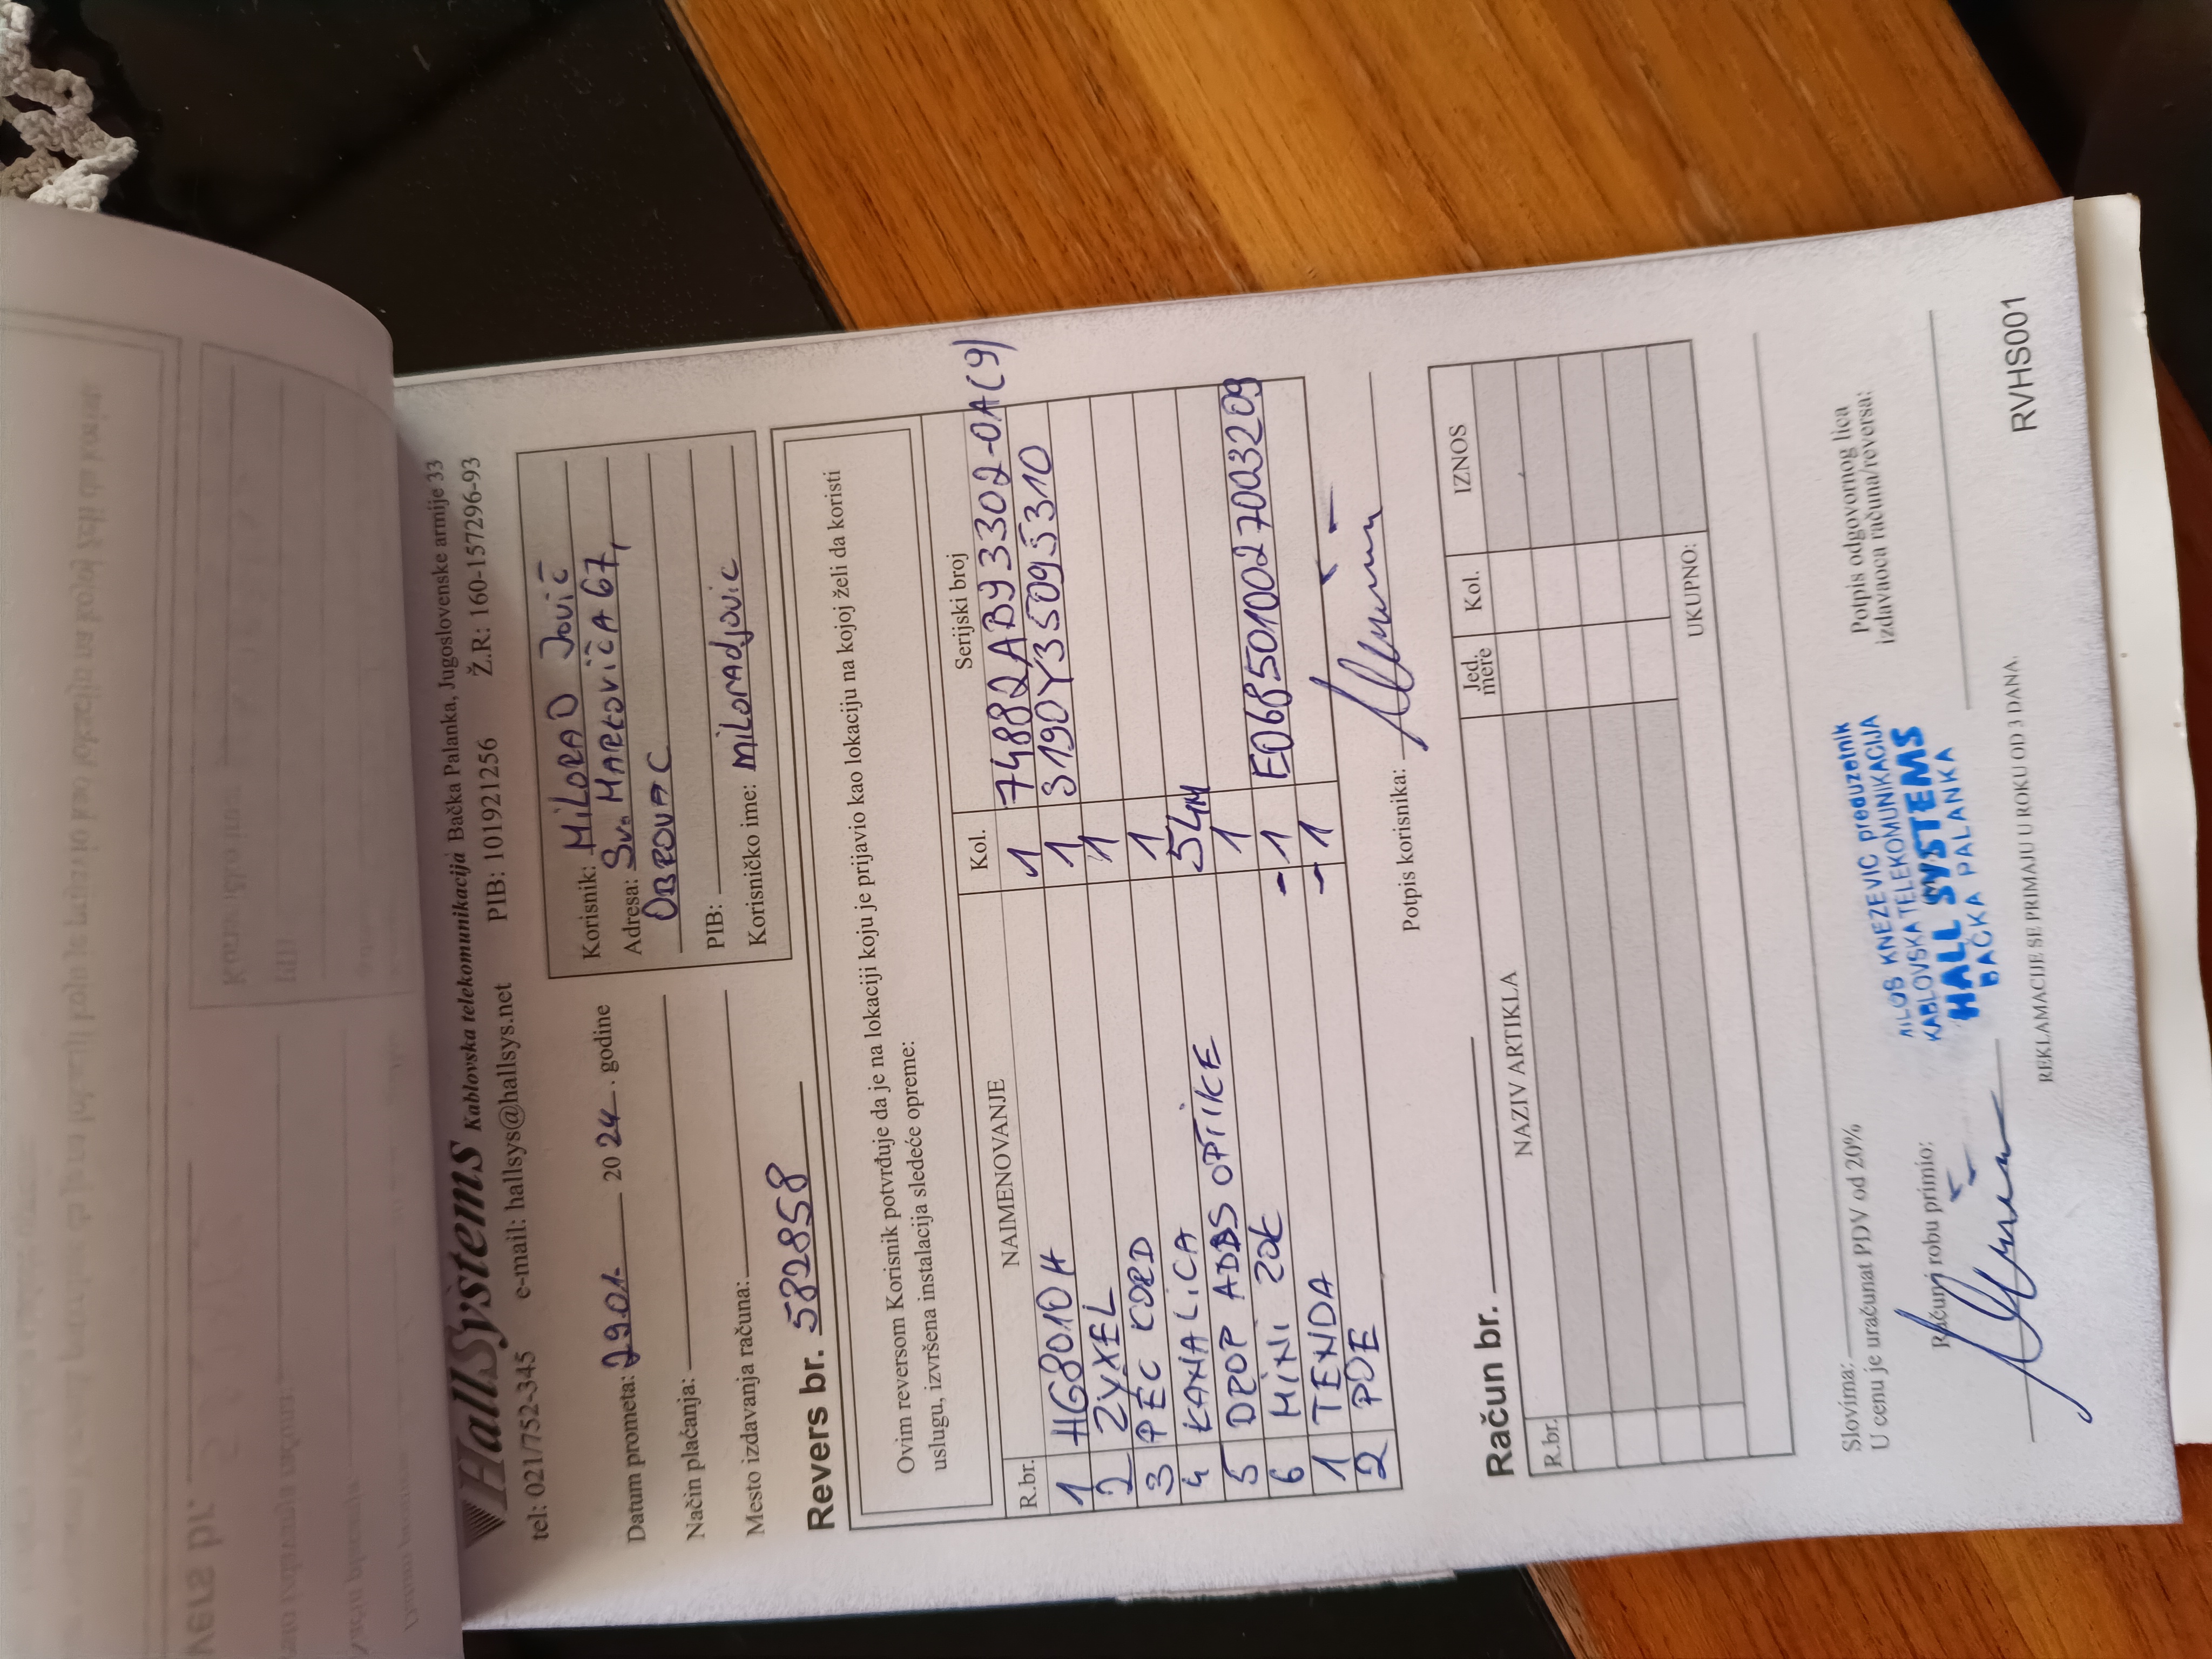 HallSystems Kablovska telekomunikacija Bačka Palanka, Jugoslovenske armije 33
tel: 021/752-345 e-mail: hallsys@hallsys.net PIB: 101921256 Ž.R: 160-157296-93
Datum prometa: 29.01. 2024. godine
Način plaćanja:
Mesto izdavanja računa:
Korisnik: MiLORAD Jović
Adresa: Sv. MARKOVIĆA 67,
OBROVAC
PIB:
Korisničko ime: miloradjovic
Revers br. 532858
Ovim reversom Korisnik potvrđuje da je na lokaciji koju je prijavio kao lokaciju na kojoj želi da koristi
uslugu, izvršena instalacija sledeće opreme:
R.br. NAIMENOVANJE Kol. Serijski broj
1 HG8010H 1 74882AB93302-0A(9)
2 ZYXEL 1 3190Y3509S310
3 PEC CORD 1
4 KANALiCA 1
5 DROP ADDS OPTiKE 54M
6 MiNi ZOK 1
1 TENDA -1 E0685010027003209
2 POE -1
Potpis korisnika:
Račun br.
R.br. NAZIV ARTIKLA Jed. mere Kol. IZNOS
UKUPNO:
Slovima:
U cenu je uračunat PDV od 20%
Račun/robu primio:
MILOŠ KNEŽEVIĆ preduzetnik
KABLOVSKA TELEKOMUNIKACIJA
HALL SYSTEMS
BAČKA PALANKA
Potpis odgovornog lica
izdavaoca računa/reversa:
REKLAMACIJE SE PRIMAJU U ROKU OD 3 DANA.
RVHS001